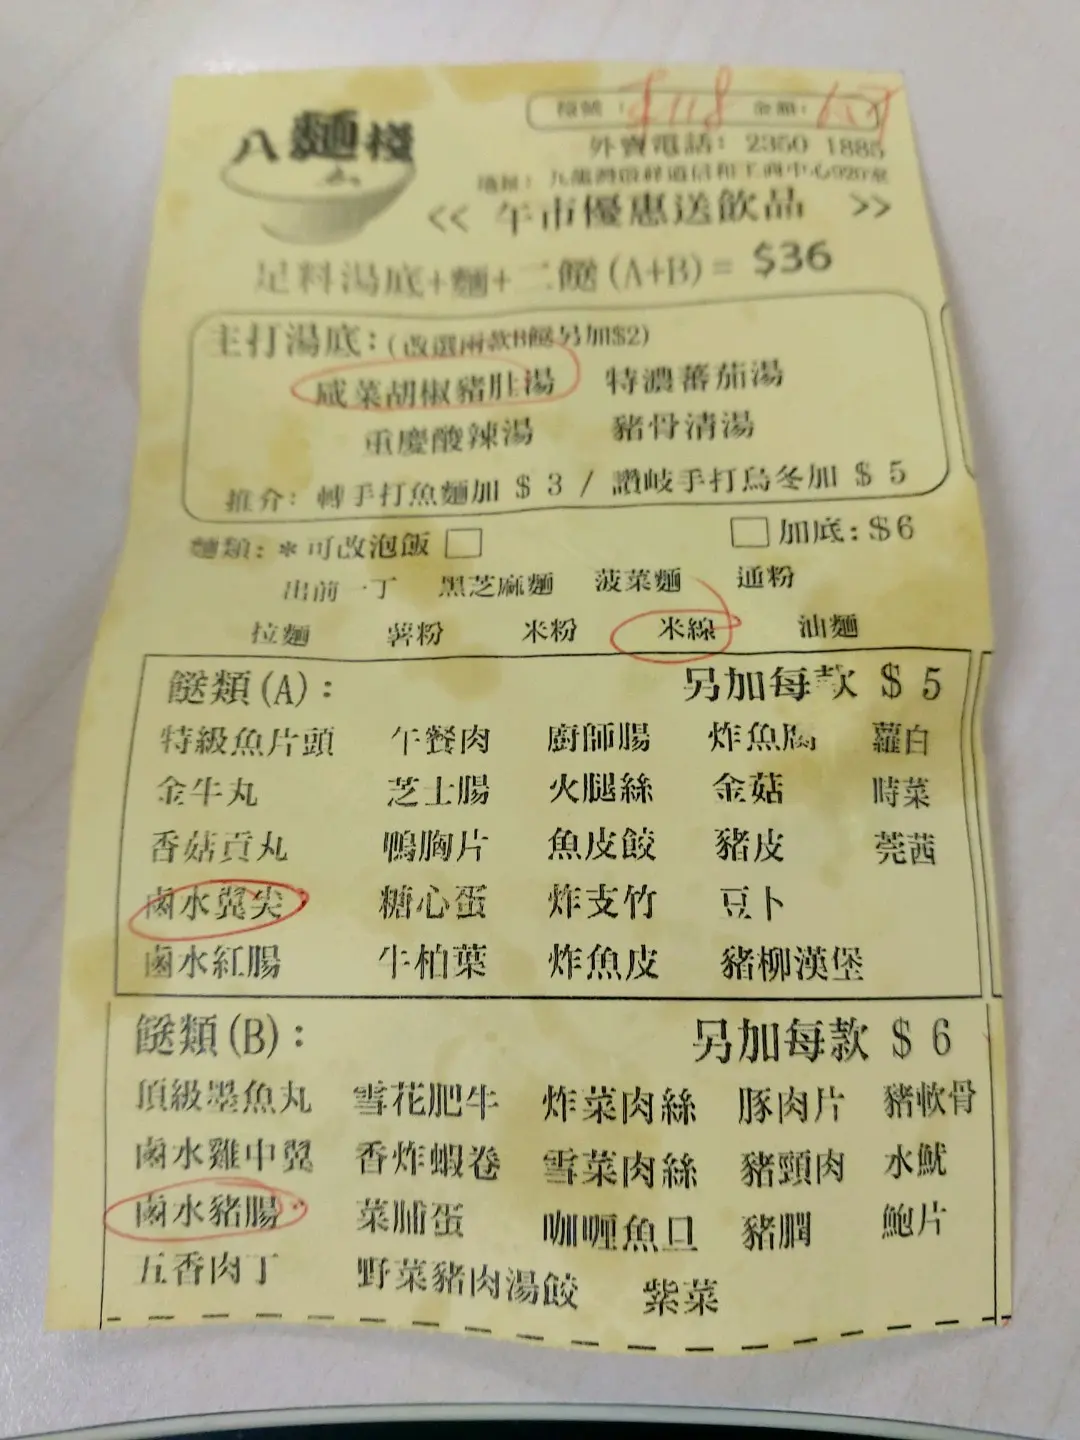 八麵棧
檯號： $118 金額：
外賣電話：2350 1885
地址：九龍灣啟祥道信和工商中心920室
<< 午市優惠送飲品 >>
足料湯底+麵+二餸(A+B)= $36
主打湯底：(改選兩款B餸另加$2)
咸菜胡椒豬肚湯 特濃蕃茄湯
重慶酸辣湯 豬骨清湯
推介：轉手打魚麵加 $ 3 / 讚岐手打烏冬加 $ 5
麵類：*可改泡飯 □ □ 加底：$6
出前一丁 黑芝麻麵 菠菜麵 通粉
拉麵 薯粉 米粉 米線 油麵
餸類(A)： 另加每款 $ 5
特級魚片頭 午餐肉 廚師腸 炸魚腐 蘿白
金牛丸 芝士腸 火腿絲 金菇 時菜
香菇貢丸 鴨胸片 魚皮餃 豬皮 莞茜
鹵水翼尖 糖心蛋 炸支竹 豆卜
鹵水紅腸 牛柏葉 炸魚皮 豬柳漢堡
餸類(B)： 另加每款 $ 6
頂級墨魚丸 雪花肥牛 炸菜肉絲 豚肉片 豬軟骨
鹵水雞中翼 香炸蝦卷 雪菜肉絲 豬頸肉 水魷
鹵水豬腸 菜脯蛋 咖喱魚旦 豬膶 鮑片
五香肉丁 野菜豬肉湯餃 紫菜